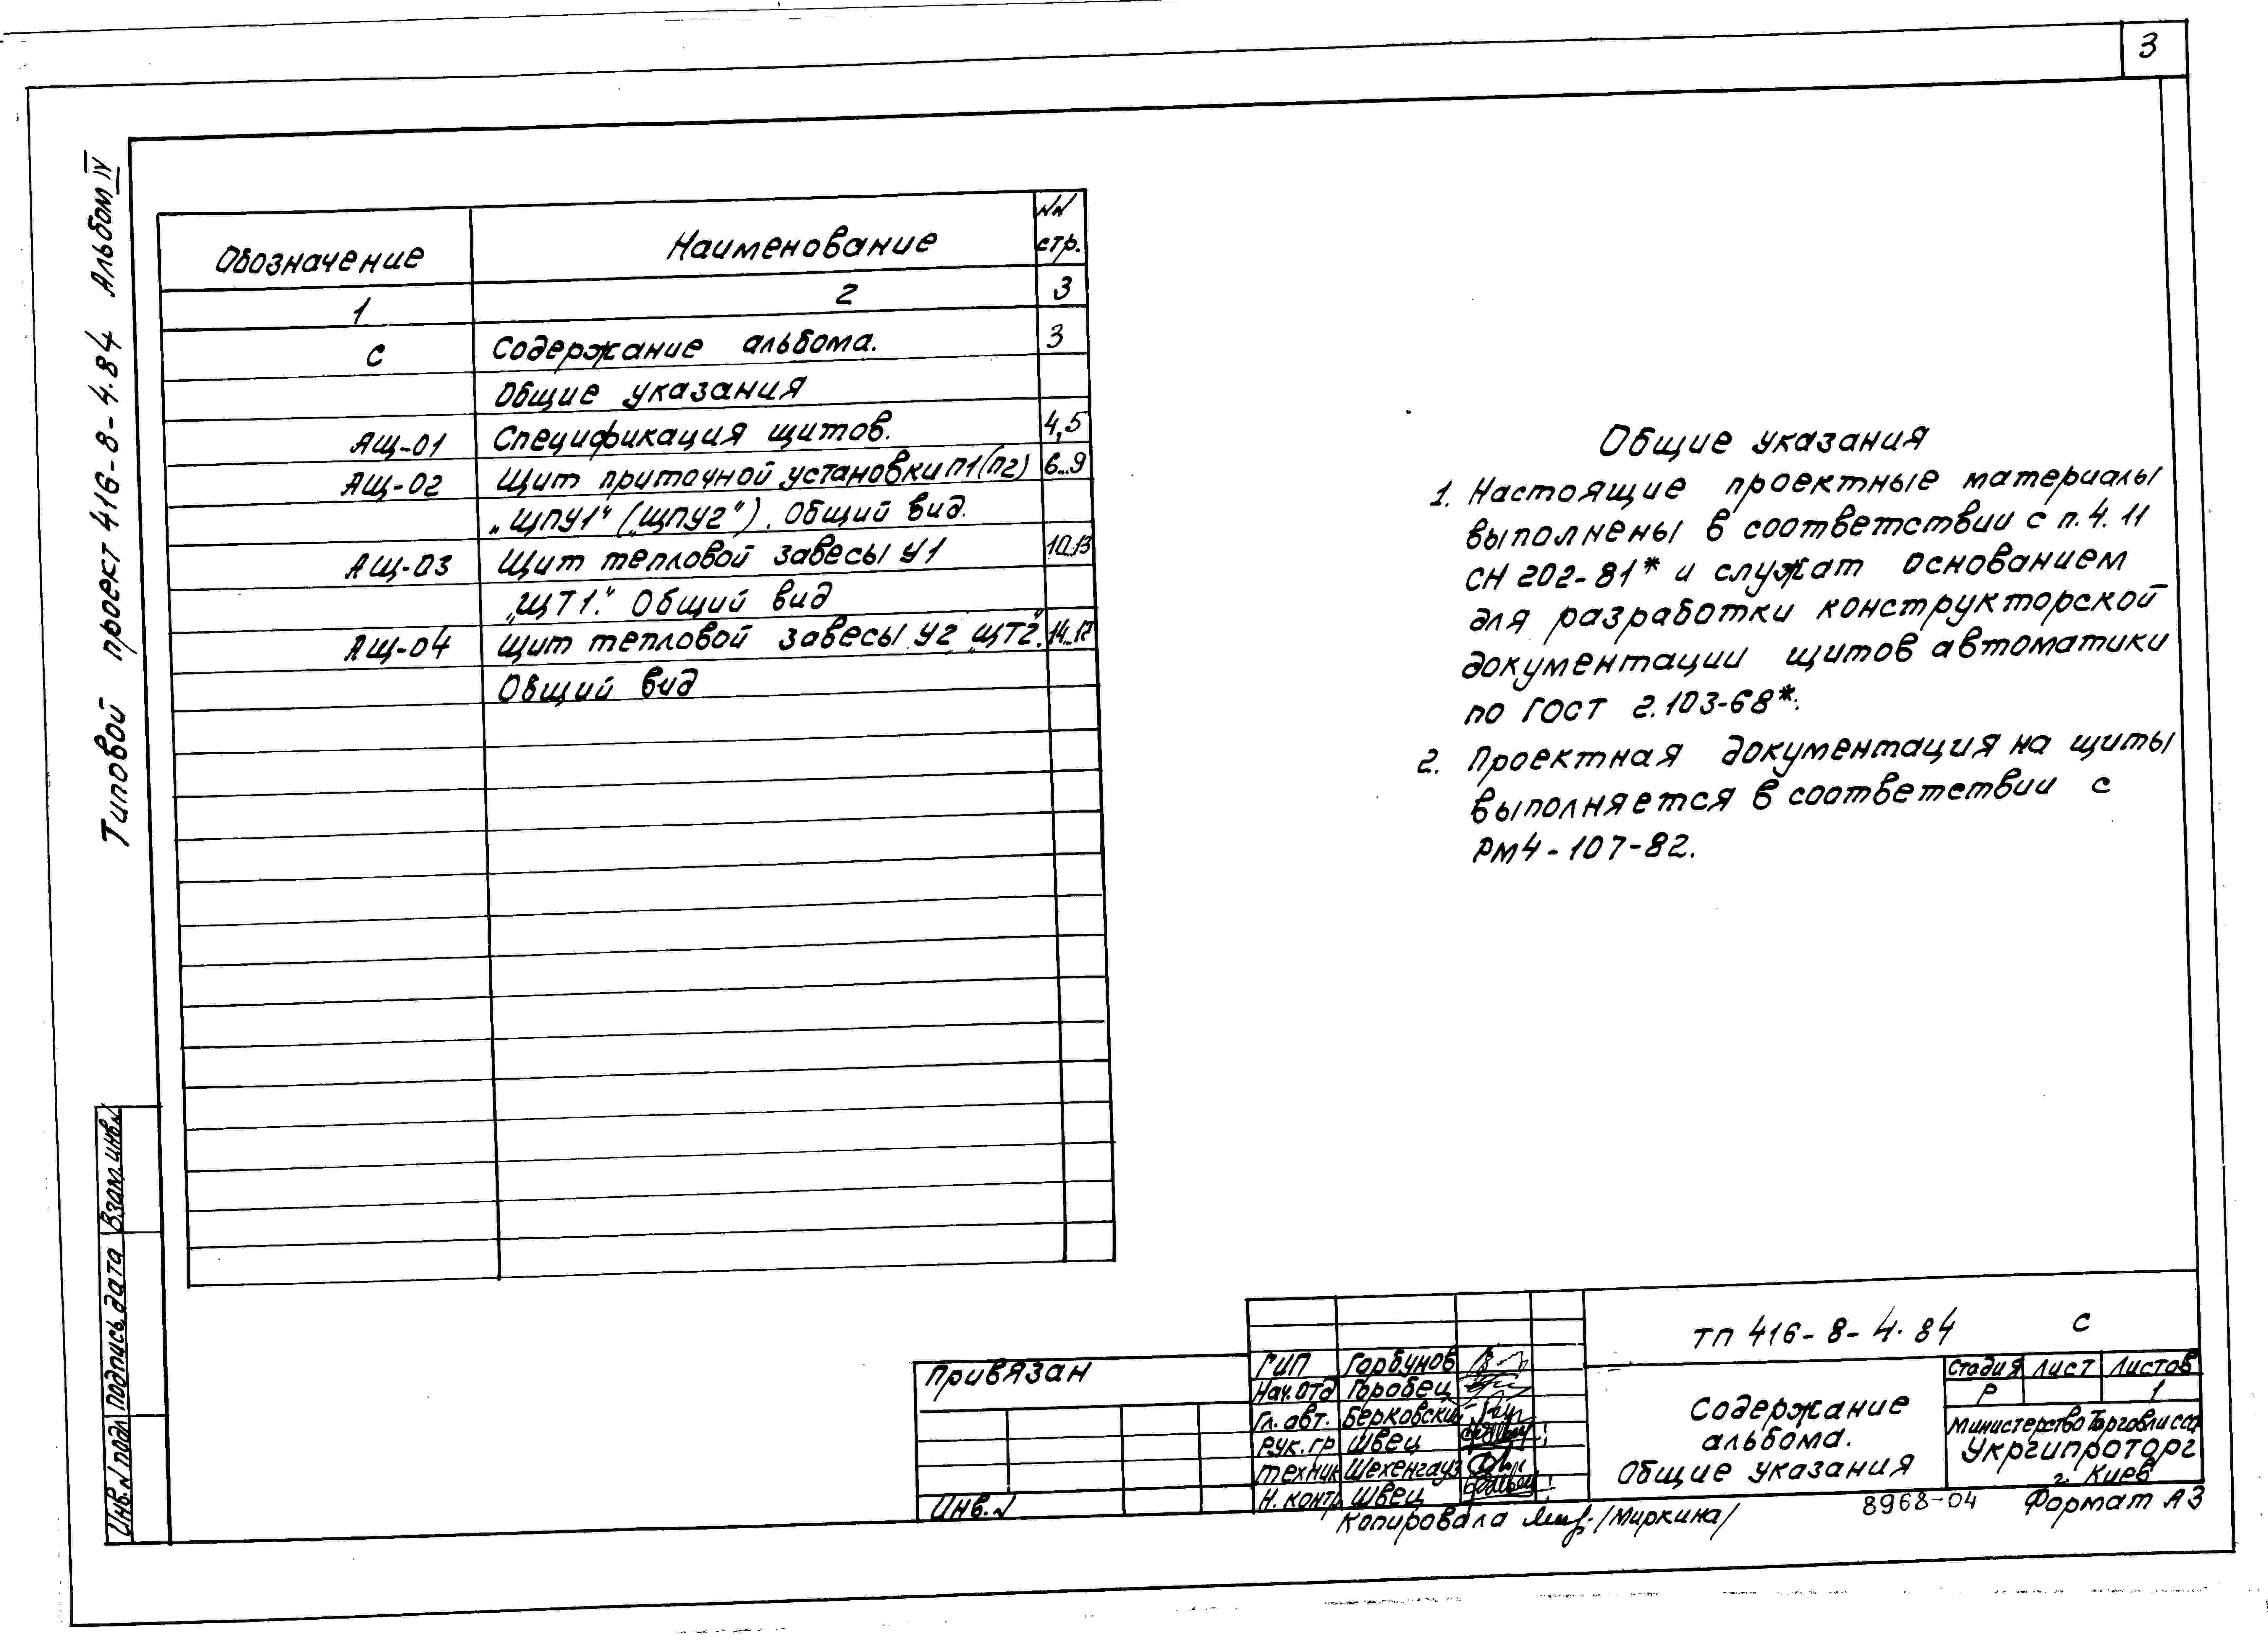 3
Типовой проект 416-8-4.84 Альбом IV
Обозначение Наименование NN стр.
1 2 3
С Содержание альбома. 3
Общие указания
АЩ-01 Спецификация щитов. 4,5
АЩ-02 Щит приточной установки П1(П2) 6...9
„ЩПУ1" („ЩПУ2"). Общий вид.
АЩ-03 Щит тепловой завесы У1 10..13
„ЩТ1." Общий вид
АЩ-04 Щит тепловой завесы У2 „ЩТ2." 14...17
Общий вид
Общие указания
1. Настоящие проектные материалы
выполнены в соответствии с п.4.11
СН 202-81* и служат основанием
для разработки конструкторской
документации щитов автоматики
по ГОСТ 2.103-68*.
2. Проектная документация на щиты
выполняется в соответствии с
РМ4-107-82.
Взам. инв. N
Подпись, дата
Инв. N подл
Привязан
Инв. N
ГИП Горбунов
Нач. отд Горобец
Гл. авт. Берковский
Рук. гр Швец
Техник Шехенгауз
Н. контр Швец
ТП 416-8-4.84 С
Содержание
альбома.
Общие указания
Стадия Лист Листов
Р 1
Министерство Торговли ССР
Укргипроторг
г. Киев
Копировала /Миркина/
8968-04
Формат А3